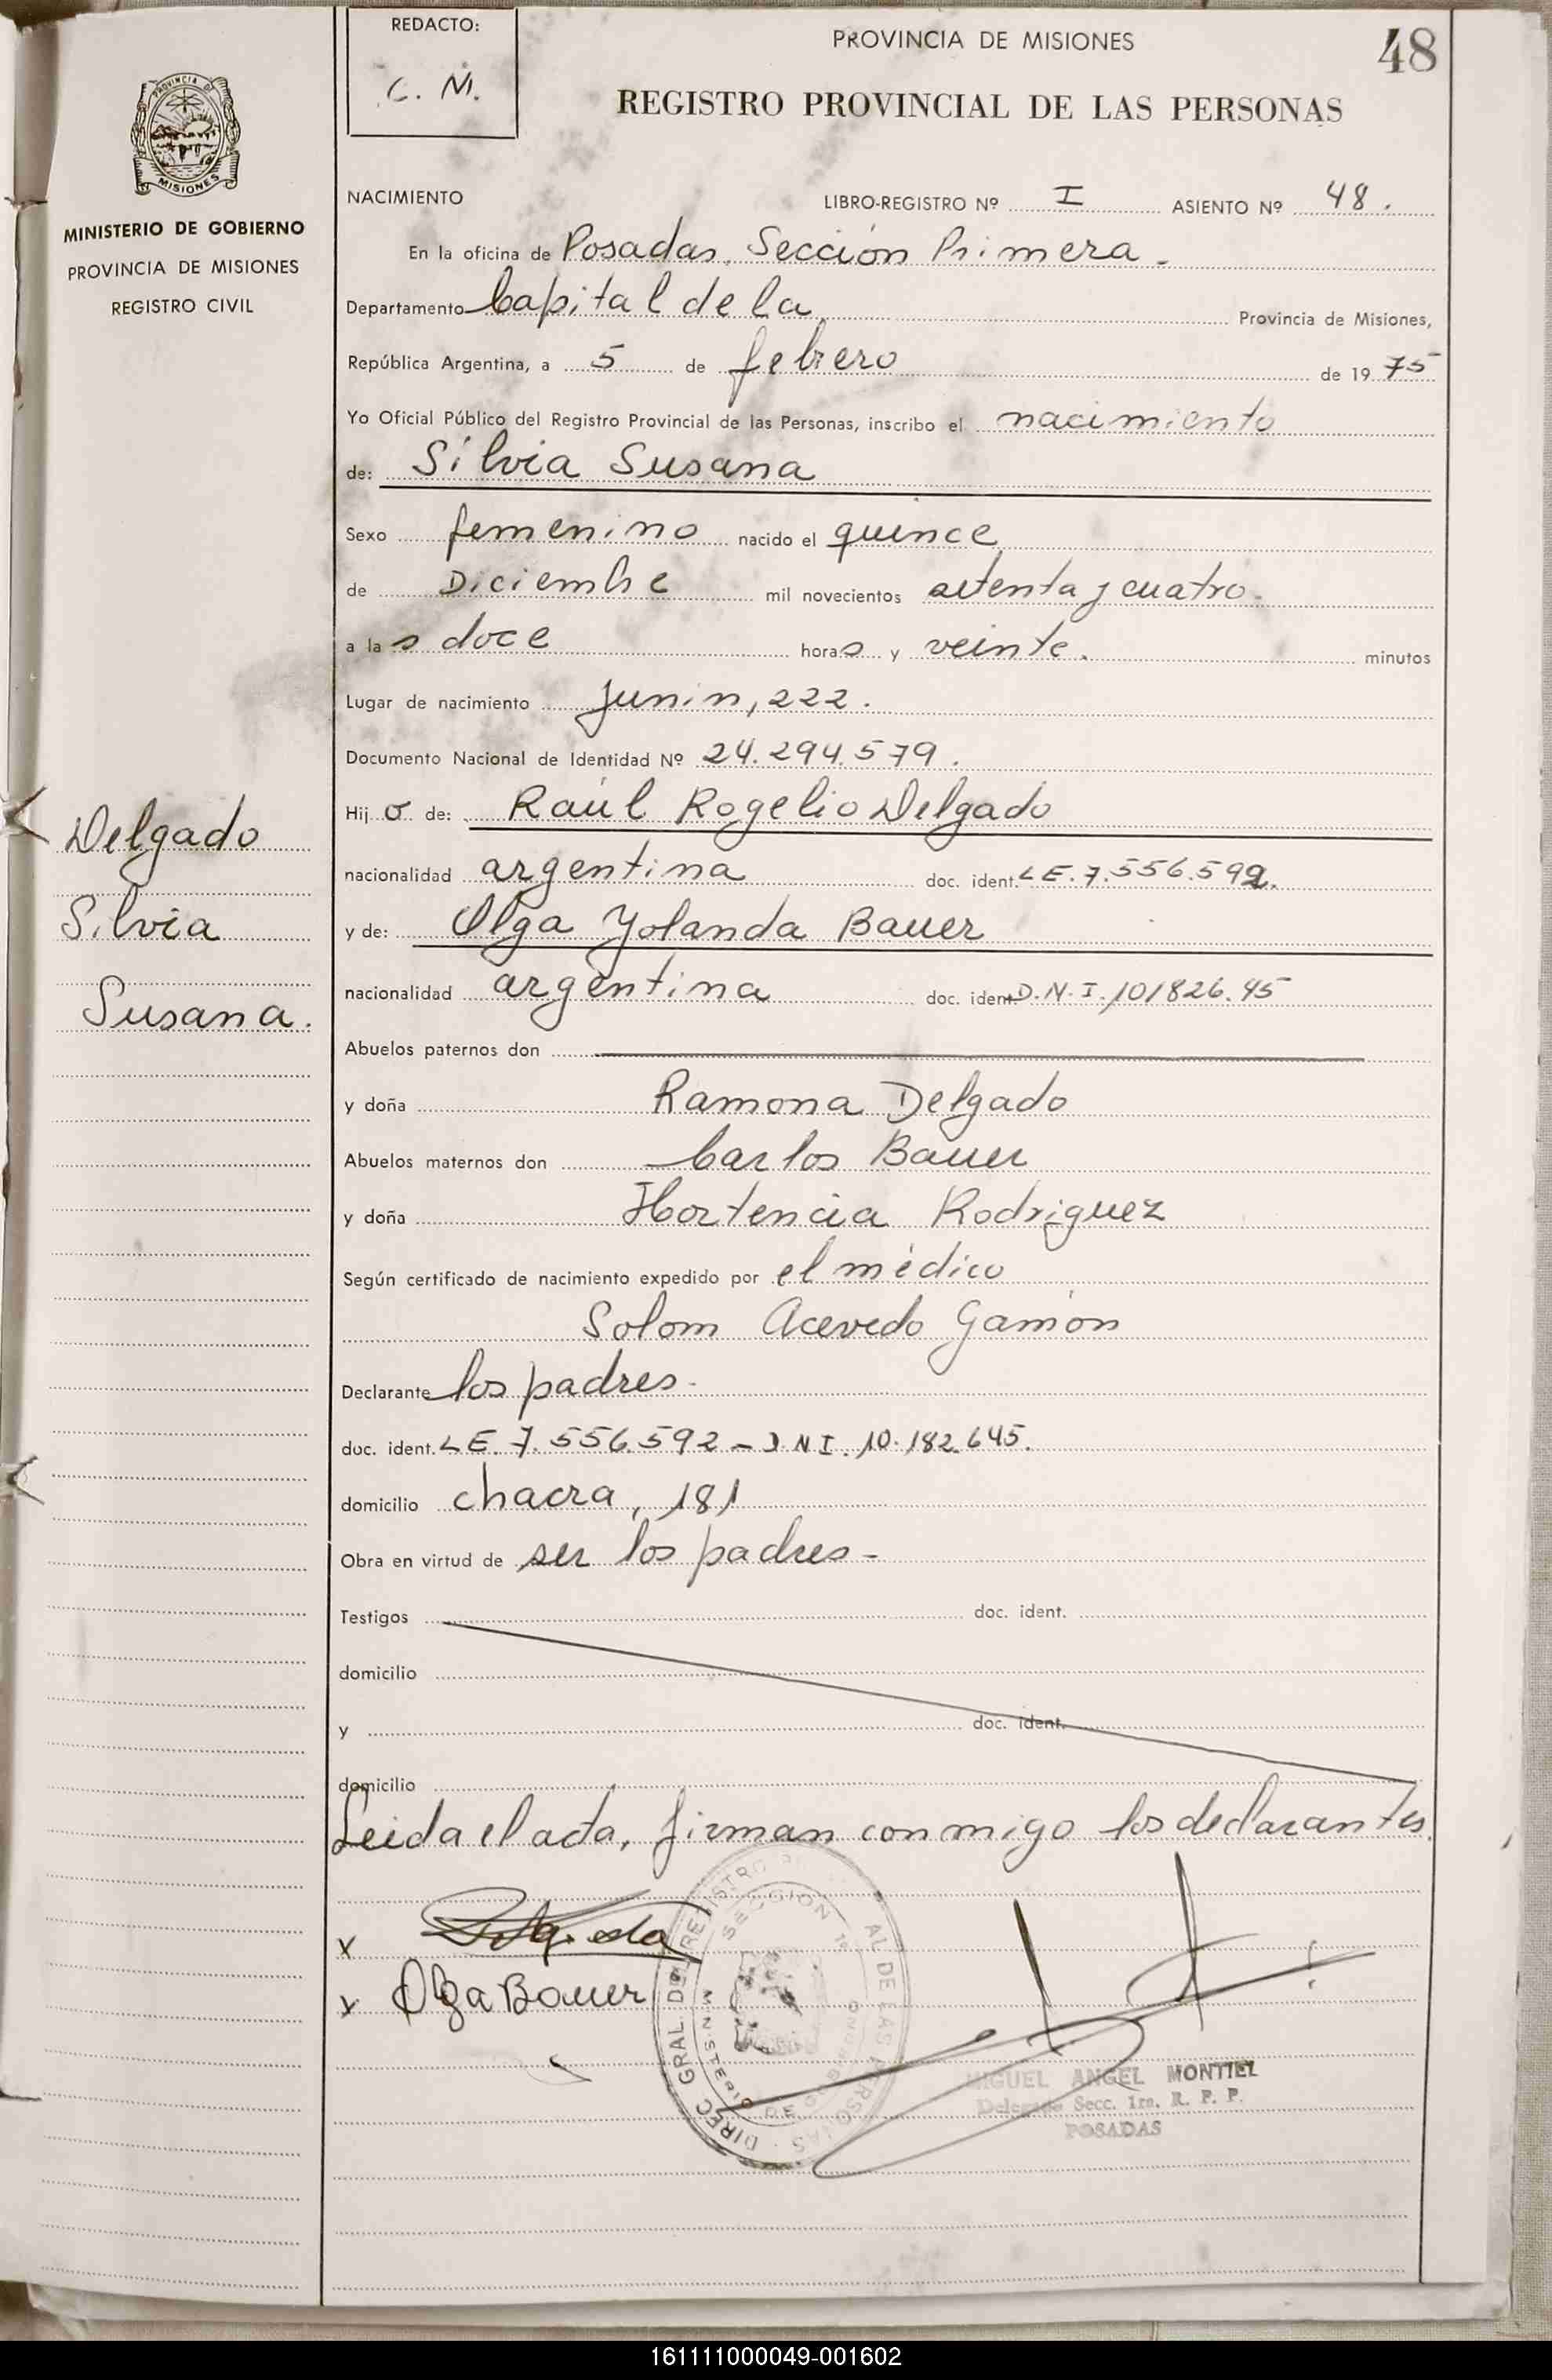 REDACTO:
C. M.
PROVINCIA DE MISIONES
48
REGISTRO PROVINCIAL DE LAS PERSONAS
PROVINCIA DE
MISIONES
MINISTERIO DE GOBIERNO
PROVINCIA DE MISIONES
REGISTRO CIVIL
NACIMIENTO LIBRO-REGISTRO Nº I ASIENTO Nº 48.
En la oficina de Posadas, Sección Primera.
Departamento Capital de la Provincia de Misiones,
República Argentina, a 5 de febrero de 1975
Yo Oficial Público del Registro Provincial de las Personas, inscribo el nacimiento
de: Silvia Susana
Sexo femenino nacido el quince
de Diciembre mil novecientos setenta y cuatro.
a las doce horas y veinte. minutos
Lugar de nacimiento Junin, 222.
Documento Nacional de Identidad Nº 24.294.579.
Hijo de: Raúl Rogelio Delgado
nacionalidad argentina doc. ident. LE. 7.556.592.
y de: Olga Yolanda Bauer
nacionalidad argentina doc. ident D.N.I. 101826.45
Abuelos paternos don
y doña Ramona Delgado
Abuelos maternos don Carlos Bauer
y doña Hortencia Rodriguez
Según certificado de nacimiento expedido por el médico
Solom Acevedo Gamón
Declarante los padres.
doc. ident. LE. 7.556.592 - DNI. 10.182.645.
domicilio chacra, 181
Obra en virtud de ser los padres -
Testigos doc. ident.
domicilio
y doc. ident.
domicilio
Leida el acta, firman conmigo los declarantes.
x
x Olga Bauer
Delgado
Silvia
Susana.
DIREC. GRAL. DEL REGISTRO AL DE LAS PERSONAS
SECCION 1º
MINISTERIO DE GOBIERNO
MIGUEL ANGEL MONTIEL
Delegado Secc. 1ra. R. P. P.
POSADAS
161111000049-001602